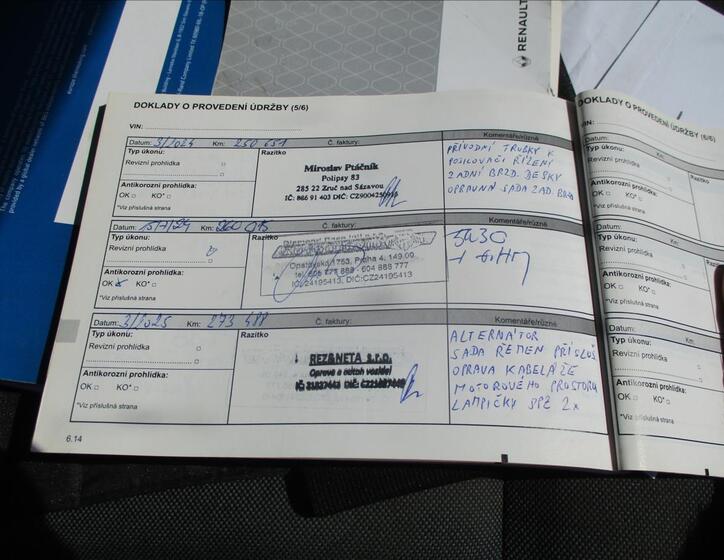 RENAULT
DOKLADY O PROVEDENÍ ÚDRŽBY (5/6)
VIN:
Datum: 3/2024 Km: 250 651 Č. faktury: Komentáře/různé
Typ úkonu: Razítko
Revizní prohlídka
Antikorozní prohlídka:
OK KO*
*Viz příslušná strana
Miroslav Ptáčník
Polipsy 83
285 22 Zruč nad Sázavou
IČ: 866 91 403 DIČ:
PŘÍVODNÍ TRUBKY K
POSILOVAČI ŘÍZENÍ
ZADNÍ BRZD. DESKY
OPRAVNÁ SADA ZAD. BRZD
Datum: Km: Komentáře/různé
Typ úkonu: Razítko
Revizní prohlídka
Antikorozní prohlídka:
OK KO*
*Viz příslušná strana
Opatovská 1753, Praha 4, 149 00
604 888 777
IČ: 24195413, DIČ:CZ24195413
5W30
Datum: 3/2025 Km: 273 488 Č. faktury: Komentáře/různé
Typ úkonu: Razítko
Revizní prohlídka
Antikorozní prohlídka:
OK KO*
*Viz příslušná strana
REZ&NETA s.r.o.
ALTERNÁTOR
SADA ŘEMEN PŘÍSLUŠ
OPRAVA KABELÁŽE
MOTOROVÉHO PROSTORU
LAMPIČKY SPZ 2x
6.14
DOKLADY O PROVEDENÍ ÚDRŽBY (6/6)
VIN:
Datum: Km:
Typ úkonu:
Revizní prohlídka
Antikorozní prohlídka:
OK KO*
*Viz příslušná strana
Datum: Km:
Typ úkonu:
Revizní prohlídka
Antikorozní prohlídka:
OK KO*
*Viz příslušná strana
Datum: Km:
Typ úkonu:
Revizní prohlídka
Antikorozní prohlídka:
OK KO*
*Viz příslušná strana